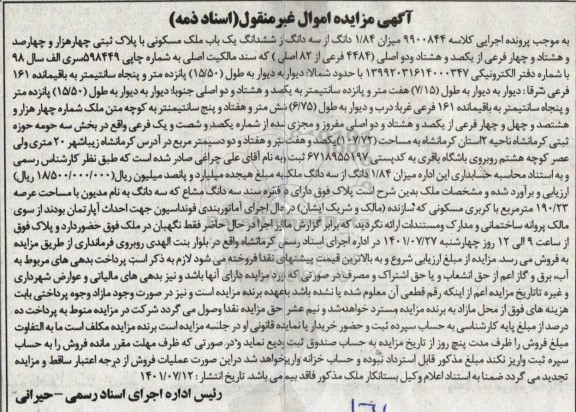 آگهی مزایده اموال غیرمنقول(اسناد ذمه)
به موجب پرونده اجرایی کلاسه ۹۹۰۰۸۴۴ میزان ۱/۸۴ دانگ از سه دانگ از ششدانگ یک باب ملک مسکونی با پلاک ثبتی چهارهزار و چهارصد
و هشتاد و چهار فرعی از یکصد و هشتاد ودو اصلی (۴۴۸۴ فرعی از ۸۲ اصلی) که سند مالکیت اصلی به شماره چاپی ۵۹۸۴۴۹سری الف سال ۹۸
با شماره دفتر الکترونیکی ۱۳۹۹۲۰۳۱۶۱۴۰۰۰۳۴۷ با حدود شمالا: دیوار به دیوار به طول (۱۵/۵۰) پانزده متر و پنجاه سانتیمتر به باقیمانده ۱۶۱
فرعی شرقا: دیوار به دیوار به طول (۷/۱۵) هفت متر و پانزده سانتیمتر به یکصد و هشتاد و دو اصلی جنوبا: دیوار به دیوار به طول (۱۵/۵۰) پانزده متر
و پنجاه سانتیمتر به باقیمانده ۱۶۱ فرعی غربا: درب و دیوار به طول (۶/۷۵) شش متر و هفتاد و پنج سانتیمتر به کوچه متن ملک شماره چهار هزار و
هشتصد و چهل و چهار فرعی از یکصد و هشتاد و دو اصلی مفروز و مجزی شده از شماره یکصد و شصت و یک فرعی واقع در بخش سه حومه حوزه
ثبتی کرمانشاه ناحیه ۲استان کرمانشاه به مساحت (۱۰۷/۷۲)یکصد و هفت متر و هفتاد و دو دسیمتر مربع در آدرس کرمانشاه زیباشهر ۲۰ متری ولی
عصر کوچه هشتم روبروی باشگاه باقری به کدپستی ۶۷۱۸۹۵۵۱۹۷ ثبت به نام آقای علی چراغی صادر شده است که طبق نظر کارشناس رسمی
و به استناد محاسبه حسابداری این اداره میزان ۱/۸۴ دانگ از سه دانگ ملک به مبلغ هیجده میلیارد و پانصد میلیون ریال(۱۸/۵۰۰/۰۰۰/۰۰۰ ریال)
ارزیابی و برآورد شده و مشخصات ملک بدین شرح است پلاک فوق دارای دو فقره سند سه دانگ مشاع که سه دانگ به نام مدیون با مساحت عرصه
۱۹۰/۲۳ مترمربع با کاربری مسکونی که سازنده (مالک و شریک ایشان) در حال اجرای آماتوربندی فونداسیون جهت احداث آپارتمان بودند از سوی
مالک پروانه ساختمانی و مدارک ومستندات ارائه نگردید، که برابر گزارش مامور اجرا در حال حاضر فقط نگهبان در ملک فوق حضوردارد و پلاک فوق
از ساعت ۹ الی ۱۲ روز چهارشنبه ۱۴۰۱/۰۷/۲۷ در اداره اجرای اسناد رسمی کرمانشاه واقع در بلوار بنت الهدی روبروی فرمانداری از طریق مزایده
به فروش می رسد. مزایده از مبلغ ارزیابی شروع و به بالاترین قیمت پیشنهای نقدا فروخته می شود لازم به ذکر است پرداخت بدهی های مربوط به
آب، برق و گاز اعم از حق انشعاب و یا حق اشتراک و مصرف در صورتی که مورد مزایده دارای آنها باشد و نیز بدهی های مالیاتی و عوارض شهرداری
و غیره تاتاریخ مزایده اعم از اینکه رقم قطعی آن معلوم شده یا نشده باشد بعهده برنده مزایده است و نیز در صورت وجود مازاد وجوه پرداختی بابت
هزینه های فوق از محل مازاد به برنده مزایده مسترد خواهدشد و نیم عشر حق مزایده نقدا وصول می گردد شرکت در مزایده منوط به پرداخت ده
درصد از مبلغ پایه کارشناسی به حساب سپرده ثبت و حضور خریدار یا نماینده قانونی او در جلسه مزایده است برنده مزایده مکلف است ما به التفاوت
مبلغ فروش را ظرف مدت پنج روز از تاریخ مزایده به حساب صندوق ثبت تودیع نماید ودر صورتی که ظرف مهلت مقرر مانده فروش را به حساب
سپرده ثبت واریز نکند مبلغ مذکور قابل استرداد نبوده و حساب خزانه واریزخواهد شد دراین صورت عملیات فروش از درجه اعتبار ساقط و مزایده
تجدید می گردد ضمنا به استناد اعلام وکیل بستانکار ملک مذکور فاقد بیمه می باشد. تاریخ انتشار: ۱۴۰۱/۰۷/۱۲
رئیس اداره اجرای اسناد رسمی –حیرانی